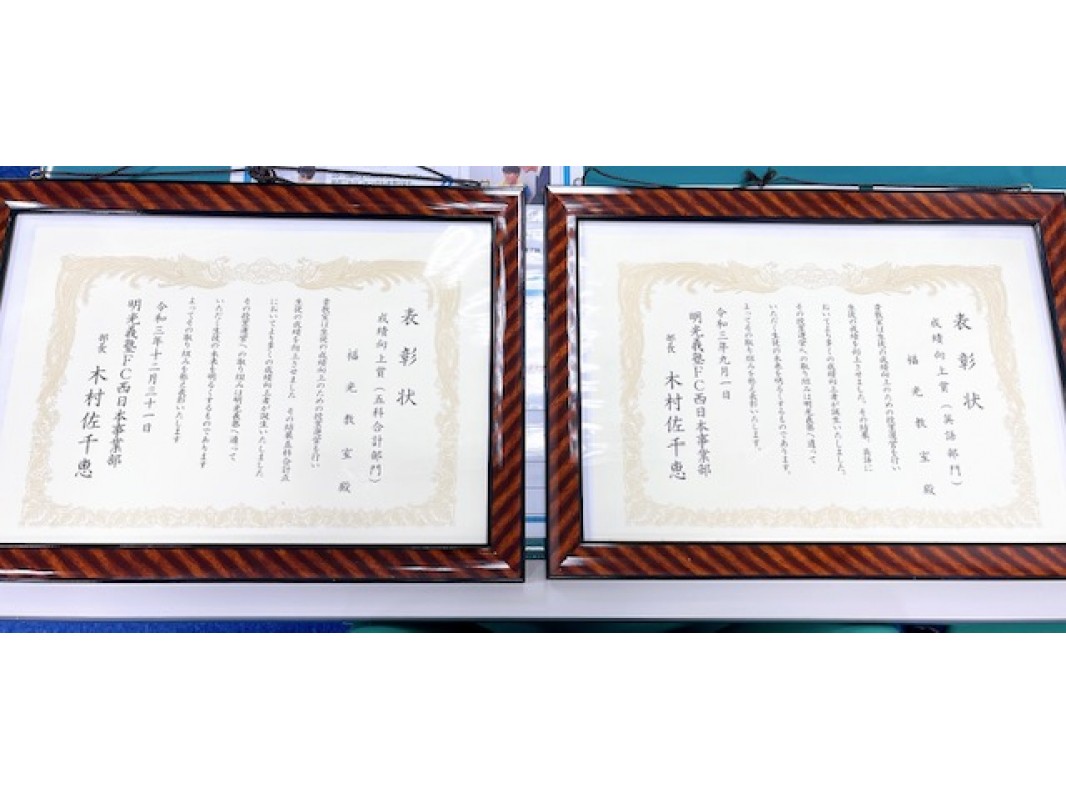 表彰状
成績向上賞（五科合計部門）
福光教室殿
貴教室は生徒の成績向上のための授業運営を行い
生徒の成績を向上させました　その結果五科合計点
において より多くの成績向上者が誕生いたしました
その授業運営への取り組みは明光義塾へ通って
いただく生徒の未来を明るくするものであります
よってその取り組みを称え表彰いたします
令和三年十二月三十一日
明光義塾FC西日本事業部
部長　木村佐千恵
表彰状
成績向上賞（英語部門）
福光教室殿
貴教室は生徒の成績向上のための授業運営を行い
生徒の成績を向上させました。その結果、英語に
おいてより多くの成績向上者が誕生いたしました。
その授業運営への取り組みは明光義塾へ通って
いただく生徒の未来を明るくするものであります。
よってその取り組みを称え表彰いたします。
令和三年九月一日
明光義塾FC西日本事業部
部長　木村佐千恵